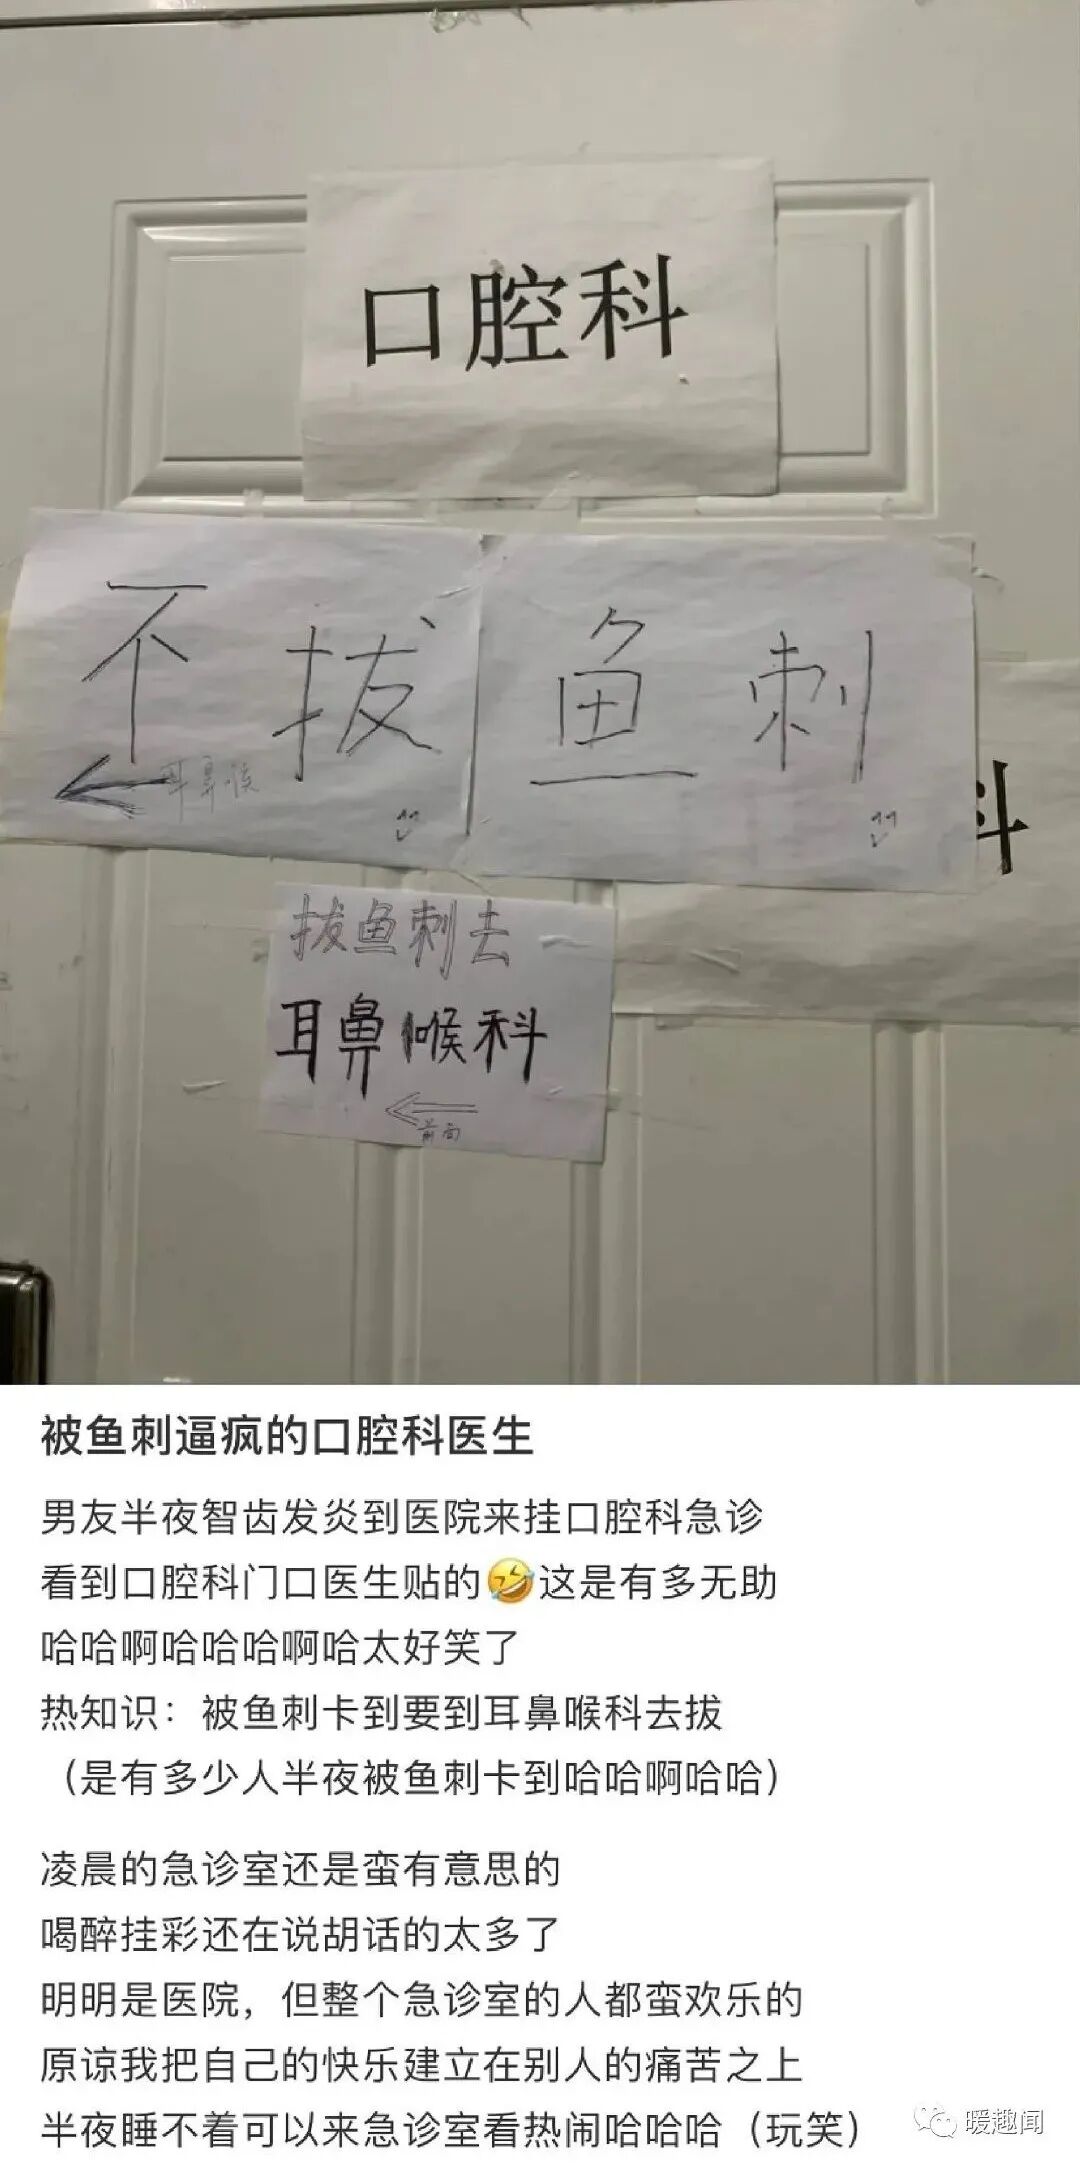 口腔科
不拔鱼刺
耳鼻喉
科
拔鱼刺去
耳鼻喉科
前面
被鱼刺逼疯的口腔科医生
男友半夜智齿发炎到医院来挂口腔科急诊
看到口腔科门口医生贴的🤣这是有多无助
哈哈啊哈哈哈啊哈太好笑了
热知识：被鱼刺卡到要到耳鼻喉科去拔
（是有多少人半夜被鱼刺卡到哈哈啊哈哈）
凌晨的急诊室还是蛮有意思的
喝醉挂彩还在说胡话的太多了
明明是医院，但整个急诊室的人都蛮欢乐的
原谅我把自己的快乐建立在别人的痛苦之上
半夜睡不着可以来急诊室看热闹哈哈哈（玩笑）
暖趣闻